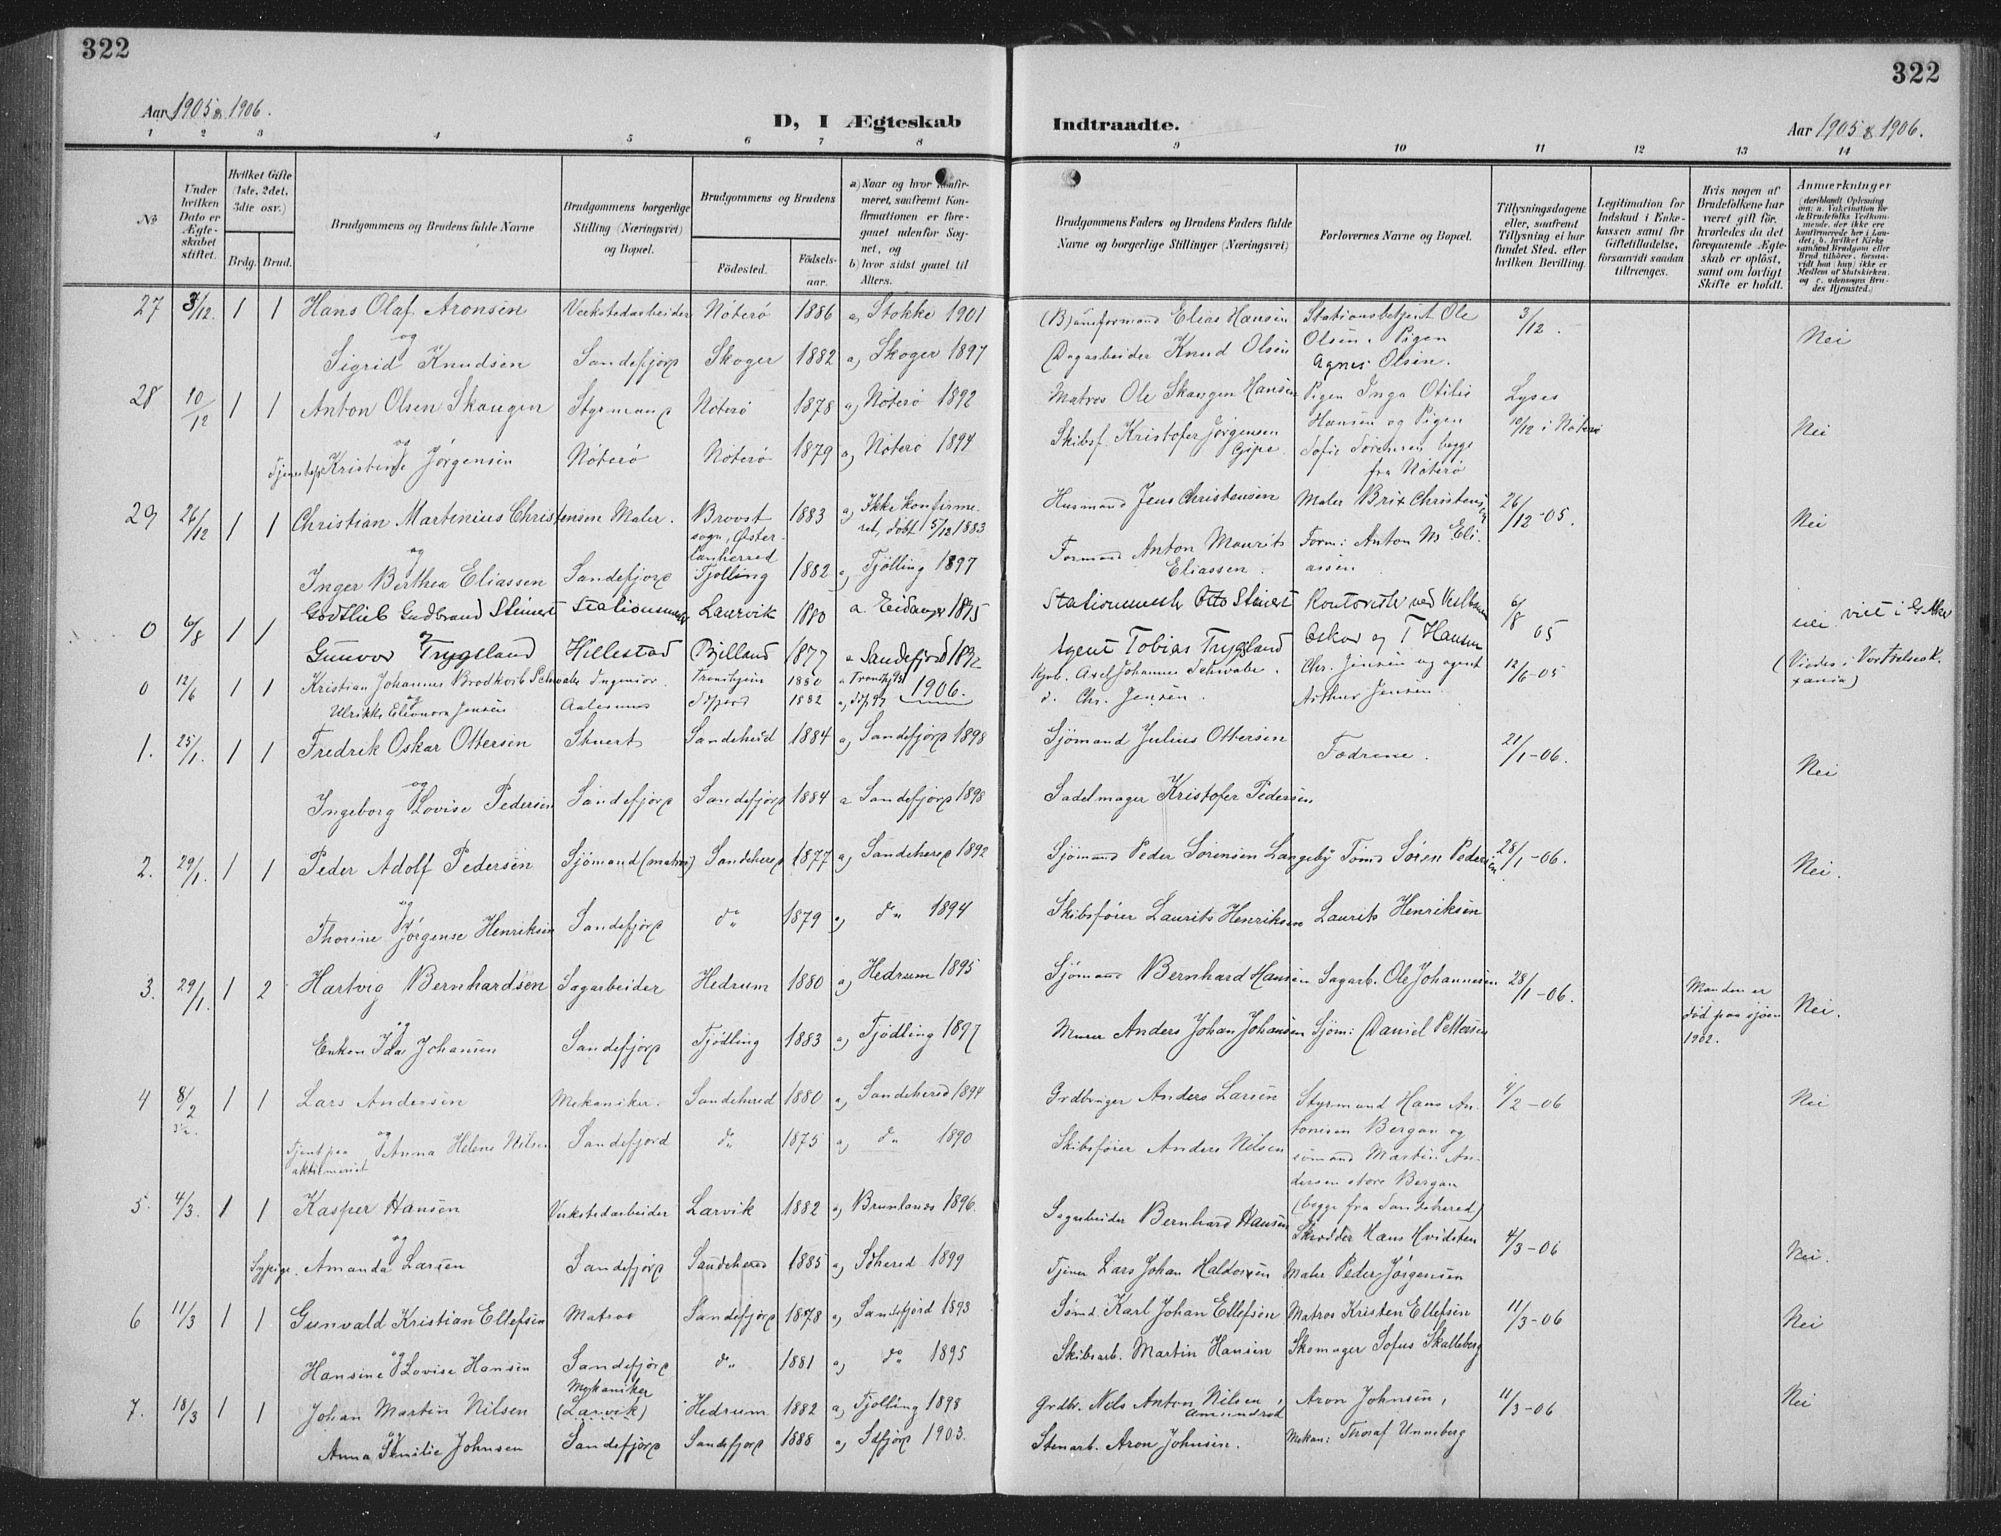 322
322
Aar 1905 & 1906.
D, I Ægteskab
Indtraadte.
Aar 1905 & 1906.
1 2 3 4 5 6 7 8 9 10 11 12 13 14
No
Under hvilken Dato er Ægteskabet stiftet.
Hvilket Gifte (1ste, 2det, 3die osv.)
Brdg. Brud.
Brudgommens og Brudens fulde Navne
Brudgommens borgerlige Stilling (Næringsvei) og Bopæl.
Brudgommens og Brudens
Fødested.
Fødselsaar.
a) Naar og hvor konfirmeret, saafremt Konfirmationen er foregaaet udenfor Sognet, og
b) hvor sidst gaaet til Alters.
Brudgommens Faders og Brudens Faders fulde Navne og borgerlige Stillinger (Næringsvei)
Forlovernes Navne og Bopæl.
Tillysningsdagene eller, saafremt Tillysning ei har fundet Sted, efter hvilken Bevilling.
Legitimation for Indskud i Enkekassen samt for Giftetilladelse, forsaavidt saadan tiltrænges.
Hvis nogen af Brudefolkene har været gift før, hvorledes da det foregaaende Ægteskab er opløst, samt om lovligt Skifte er holdt.
Anmærkninger
(deriblandt Oplysning om: a. Vakcination for de Brudefolks Vedkommende, der ikke ere konfirmerede her i Landet; b. hvilket Kirkesamfund Brudgom eller Brud tilhører, forsaavidt han (hun) ikke er Medlem af Statskirken, og c. udensogns Brudes Hjemsted.)
27 3/12. 1 1 Hans Olaf Aronsen Verkstedarbeider Nøterø 1886 a) Stokke 1901 Elias Hansen Stationsbetjent Ole 3/12. Nei
og
Sigrid Knudsen Sandefjord Skoger 1882 a) Skoger 1897 Dagarbeider Knud Olsen Olsen. Pigen Agnes Olsen.
28 10/12 1 1 Anton Olsen Skaugen Styrmand Nøterø 1878 a) Nøterø 1892 Matros Ole Skaugen Hansen Pigen Inga Otilie Lyses Nei
og
Kristene Jørgensen Nøterø Nøterø 1879 a) Nøterø 1894 Skibsf. Kristofer Jørgensen Gipø Hansen og Pigen Sofie Sørensen begge fra Nøterø 10/12 i Nøterø
29 26/12 1 1 Christian Martinius Christensen Maler. Brovst sogn, Øster-hanherred 1883 a) Ikke konfirmeret, døbt 5/12 1883 Husmand Jens Christensen Maler Brix Christensen 26/12-05. Nei
og
Inger Berthea Eliassen Sandefjord Tjølling 1882 a) Tjølling 1897 Formand Anton Maurits Eliassen. Form: Anton M. Eliassen
0 6/8 1 1 Godtlieb Gudbrand Steinert Stationsmester Laurvik 1880 a. Eidanger 1895 Stationsmester Otto Steinert Kontorister ved 6/8 05 nei viet i G. Aker
og
Gunvor Trygsland Hillestad Bjelland 1877 a Sandefjord 1892 Agent Tobias Trygsland Oskar og T Hansen
0 12/6 1 1 Kristian Johannes Brodkorb Schwabe Ingeniør. Trondhjem 1880 Axel Johannes Schwabe. Chr. Jensen og agent 12/6-05 (Viedes i
og
Ulrikke Eleonora Jensen Aalesund 1882 Chr. Jensen. Arthur Jensen.
1906.
1. 25/1. 1 1 Fredrik Oskar Ottersen Stuert Sandeherd 1884 a) Sandefjord 1898 Sjømand Julius Ottersen Fædrene. 21/1-06. Nei
og
Ingeborg Lovise Pedersen Sandefjord Sandefjord 1884 a Sandefjord 1898 Sadelmager Kristofer Pedersen
2. 29/1. 1 1 Peder Adolf Pedersen Sjømand (matros) Sandeherd 1877 a) Sandeherd 1892 Sjømand Peder Sørensen Langeby Sømd Søren Pedersen 28/1-06. Nei.
og
Thorine Jørgense Henriksen Sandefjord do 1879 a) do 1894 Skibsfører Laurits Henriksen Laurits Henriksen
3. 29/1. 1 2 Hartvig Bernhardsen Sagarbeider Hedrum 1880 a) Hedrum 1895 Sjømand Bernhard Hansen Sagarb. Ole Johannesen 28/1-06. Manden er død paa sjøen 1902. Nei.
og
Enken Ida Johansen Sandefjord Tjødling 1883 a) Tjødling 1897 Murer Anders Johan Johansen Sjøm: Daniel Pettersen
4 8/2 1 1 Lars Andersen Mekaniker. Sandeherd 1880 a) Sandeherd 1894 Grdbruger Anders Larsen Styrmand Hans An- 4/2-06 Nei
og
Tjent paa Anna Helene Nilsen Sandefjord do 1875 a) do 1890 Skibsfører Anders Nilsen tonisen Bergan og sømand Martin Andersen store Bergan (begge fra Sandeherd)
5. 4/3. 1 1 Kasper Hansen Verkstedarbeider Larvik 1882 a) Brunlanes 1896. Sagarbeider Bernhard Hansen Skrædder Hans Hvidsten 4/3-06 Nei.
og
Sypige. Amanda Larsen Sandefjord Sandeherd 1885 a) Sdherd 1899 Tjener Lars Johan Haldorsen Maler Peder Jørgensen
6 11/3 1 1 Gunvald Kristian Ellefsen Matros Sandefjord 1878 a) Sandefjord 1893 Sømd. Karl Johan Ellefsen Matros Kristen Ellefsen 11/3-06 Nei
og
Hansine Lovise Hansen Sandefjord do 1881 a) do 1895 Skibsarb. Martin Hansen Skomager Sofus Skalleberg
7. 18/3 1 1 Johan Martin Nilsen Mekaniker (Larvik) Hedrum 1882 a) Tjølling 1898 Grdbr. Nils Anton Nilsen, Amundrød Aron Johnsen, 11/3-06 Nei
og
Anna Emilie Johnsen Sandefjord Sandefjord 1888 a) Sdfjord 1903. Stenarb. Aron Johnsen. Mekan: Thoraf Unneberg